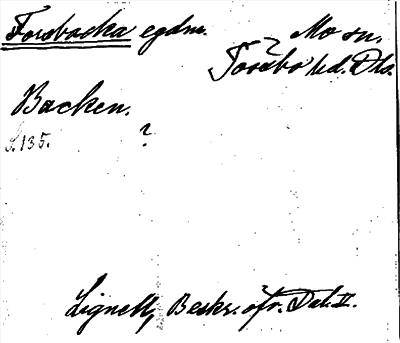 Forsbacka egdm. Mo sn.
Tössbo hd. Dls.
Backen.
S. 135. ?
Lignell, Beskr. öfr. Dal. II.